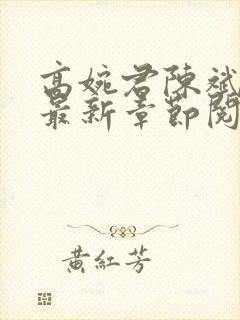 高婉君陳斌
最新章節閱
黃紅芳